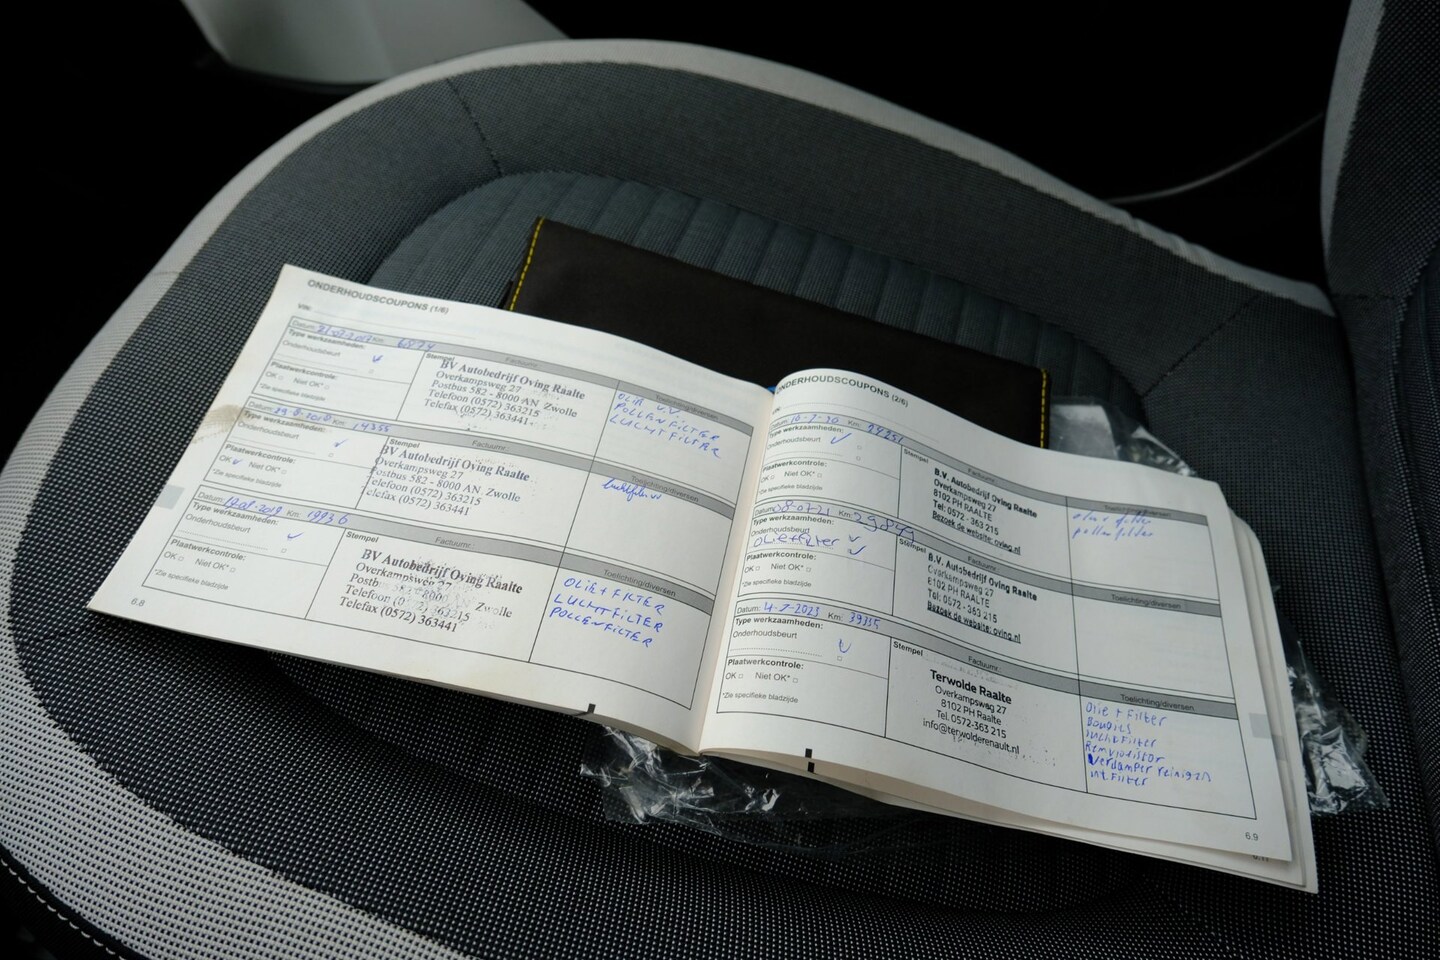 ONDERHOUDSCOUPONS (1/6)
VIN:
Datum: Km: 6874
Type werkzaamheden:
Onderhoudsbeurt
Plaatwerkcontrole:
OK Niet OK*
*Zie specifieke bladzijde
Stempel
Factuurnr.
BV Autobedrijf Oving Raalte
Overkampsweg 27
Postbus 582 - 8000 AN Zwolle
Telefoon (0572) 363215
Telefax (0572) 363441
Toelichting/diversen
OLIE V.V.
POLLENFILTER
LUCHTFILTER
Datum: Km: 14355
Type werkzaamheden:
Onderhoudsbeurt
Plaatwerkcontrole:
OK Niet OK*
*Zie specifieke bladzijde
Stempel
Factuurnr.
BV Autobedrijf Oving Raalte
Overkampsweg 27
Postbus 582 - 8000 AN Zwolle
Telefoon (0572) 363215
Telefax (0572) 363441
Toelichting/diversen
Datum: Km: 19936
Type werkzaamheden:
Onderhoudsbeurt
Plaatwerkcontrole:
OK Niet OK*
*Zie specifieke bladzijde
Stempel
Factuurnr.
BV Autobedrijf Oving Raalte
Overkampsweg 27
Postb 582 - 8000 Zwolle
Telefoon (0572) 363215
Telefax (0572) 363441
Toelichting/diversen
OLIE + FILTER
LUCHTFILTER
POLLENFILTER
6.8
ONDERHOUDSCOUPONS (2/6)
VIN:
Datum: 16-7-20 Km: 24251
Type werkzaamheden:
Onderhoudsbeurt
Plaatwerkcontrole:
OK Niet OK*
*Zie specifieke bladzijde
Stempel
Factuurnr.
B.V. Autobedrijf Oving Raalte
Overkampsweg 27
8102 PH RAALTE
Tel: 0572 - 363 215
Bezoek de website: oving.nl
Toelichting/diversen
olie + filter
pollenfilter
Datum: 08-07-21 Km: 29899
Type werkzaamheden:
Onderhoudsbeurt
OLie+filter
Plaatwerkcontrole:
OK Niet OK*
*Zie specifieke bladzijde
Stempel
Factuurnr.
B.V. Autobedrijf Oving Raalte
Overkampsweg 27
8102 PH RAALTE
Tel: 0572 - 363 215
Bezoek de website: oving.nl
Toelichting/diversen
Datum: 4-7-2023 Km: 39355
Type werkzaamheden:
Onderhoudsbeurt
Plaatwerkcontrole:
OK Niet OK*
*Zie specifieke bladzijde
Stempel
Factuurnr.
Terwolde Raalte
Overkampsweg 27
8102 PH Raalte
Tel. 0572-363 215
info@terwolderenault.nl
Toelichting/diversen
Olie + Filter
Bougies
luchtFilter
Remvloeistor
Verdamper reinigen
int Filter
6.9
6.11